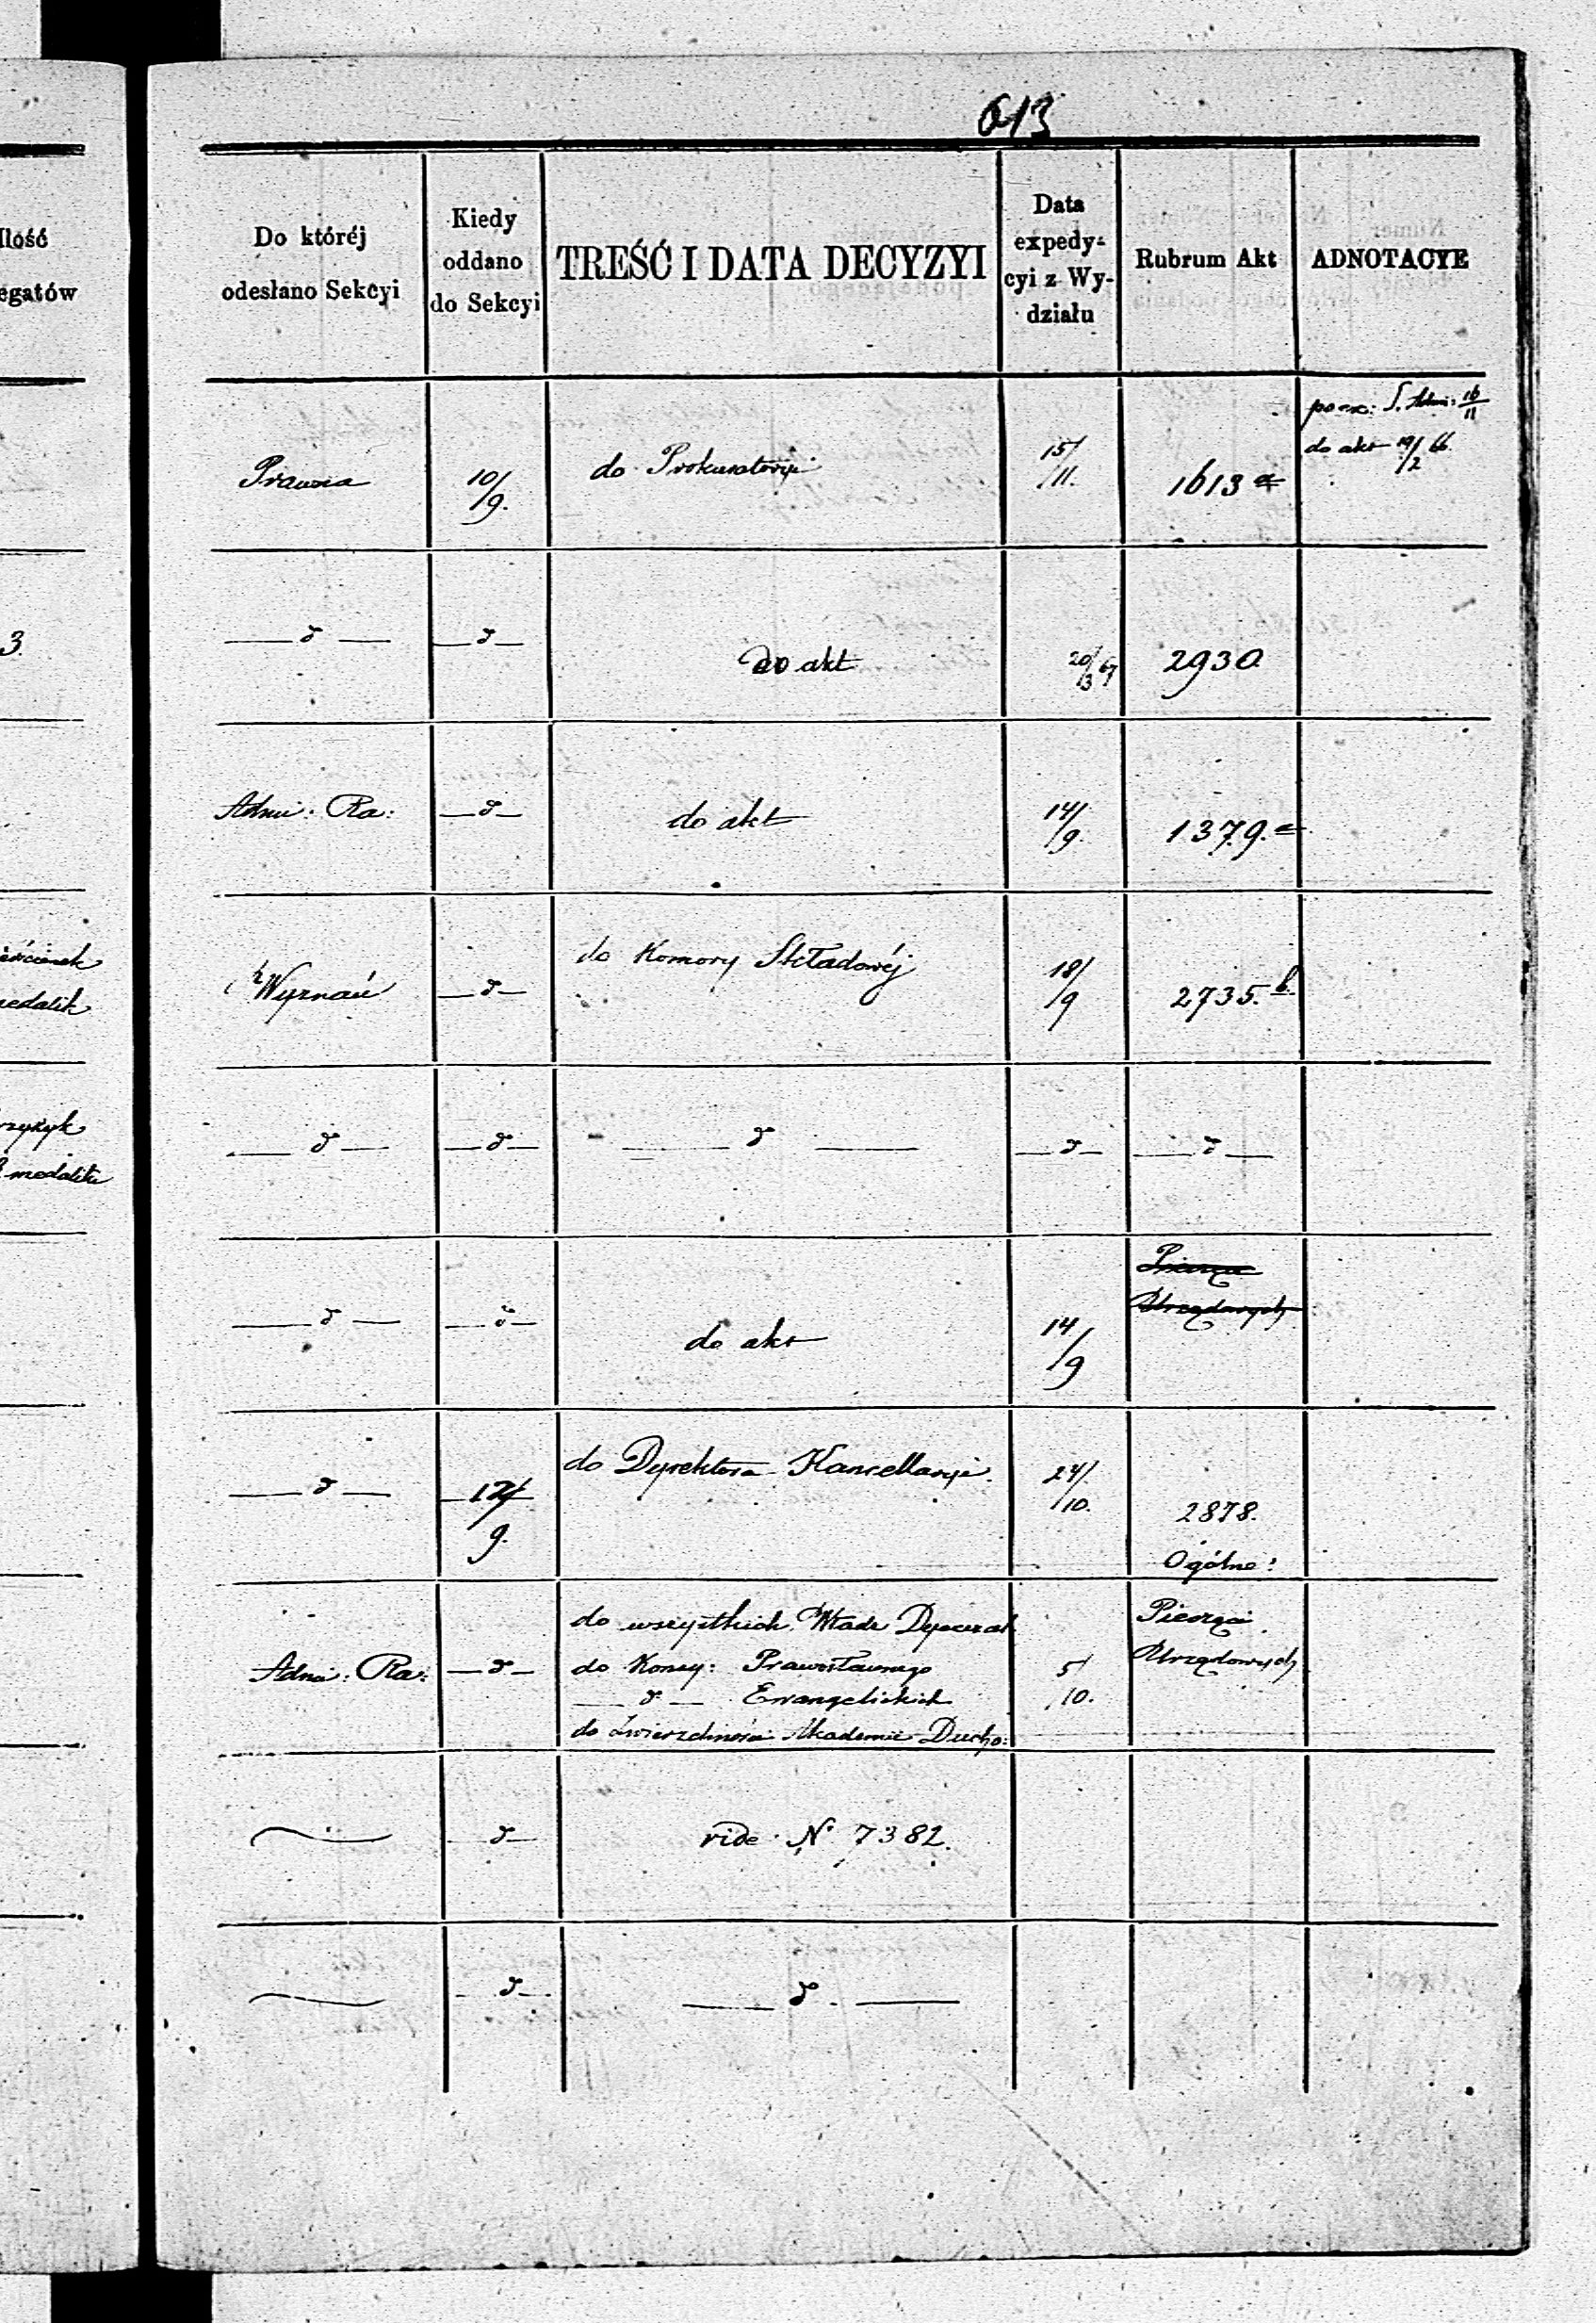 613
Ilość
egatów
Do któréj
odesłano Sekcyi
Kiedy
oddano
do Sekcyi
TREŚĆ I DATA DECYZYI
Data
expedy-
cyi z Wy-
działu
Rubrum Akt
ADNOTACYE
Prawna
10/9.
do Prokuratoryi
15/11.
1613 a
do akt 19/2 66.
3.
— d —
— d —
do akt
20/3 67
2930
Admi: Ra:
— d —
do akt
14/9.
1379. a
medalik
Wyznań
— d —
do Komory Składowéj
18/9
2735. b.
medaliki
— d —
— d —
— d —
— d —
— d —
— d —
— d —
do akt
14/9
Pieczęci
Urzędowych
— d —
12/9.
do Dyrektora Kancellaryi.
24/10.
2878.
Ogólne:
Admi: Ra:
— d —
do wszystkich Władz Dyecezal
do Konsy: Prawosławnego
— d — Ewangelickich
do Zwierzchności Akademii Ducho:
5/10.
Pieczęci
Urzędowych
— d —
vide N° 7382.
— d —
— d —